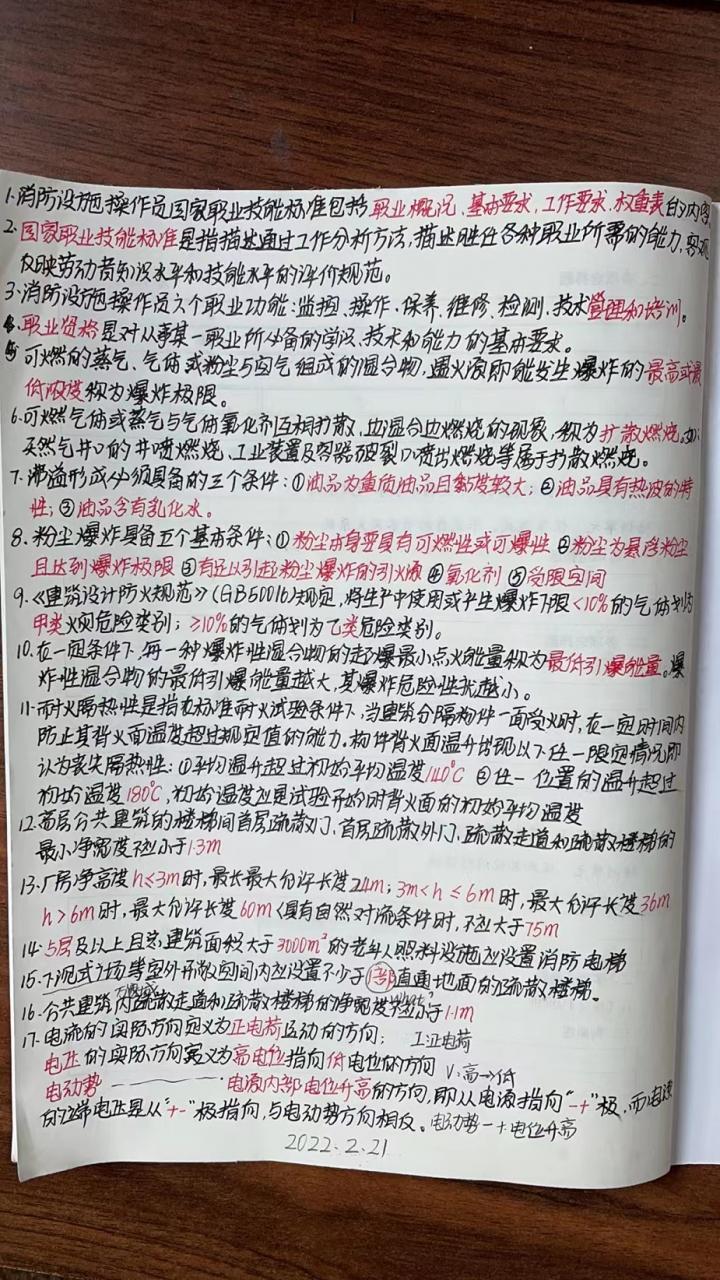 1.消防设施操作员国家职业技能标准包括职业概况、基本要求、工作要求、权重表的内容
2.国家职业技能标准是指描述通过工作分析方法,描述胜任各种职业所需的能力,客观
反映劳动者知识水平和技能水平的评价规范。
3.消防设施操作员六个职业功能:监控、操作、保养、维修、检测、技术管理和培训。
4.职业资格是对从事某一职业所必备的学识、技术和能力的基本要求。
5.可燃的蒸气、气体或粉尘与空气组成的混合物,遇火源即能发生爆炸的最高或最
低浓度称为爆炸极限。
6.可燃气体或蒸气与气体氧化剂互相扩散,边混合边燃烧的现象,称为扩散燃烧。如:
天然气井口的井喷燃烧、工业装置及容器破裂口喷出燃烧等属于扩散燃烧。
7.沸溢形成必须具备的三个条件:①油品为重质油品且黏度较大;②油品具有热波的特
性;③油品含有乳化水。
8.粉尘爆炸具备五个基本条件:①粉尘本身要具有可燃性或可爆性 ②粉尘为悬浮粉尘
且达到爆炸极限 ③有足以引起粉尘爆炸的引火源 ④氧化剂 ⑤受限空间
9.《建筑设计防火规范》(GB50016)规定,将生产中使用或产生爆炸下限<10%的气体划为
甲类火灾危险类别;≥10%的气体划为乙类危险类别。
10.在一定条件下,每一种爆炸性混合物的起爆最小点火能量称为最低引爆能量。爆
炸性混合物的最低引爆能量越大,其爆炸危险性就越小。
11.耐火隔热性是指在标准耐火试验条件下,当建筑分隔构件一面受火时,在一定时间内
防止其背火面温度超过规定值的能力。构件背火面温升出现以下任一限定情况即
认为丧失隔热性:①平均温升超过初始平均温度140℃ ②任一位置的温升超过
初始温度180℃,初始温度应是试验开始时背火面的初始平均温度
12.高层公共建筑的楼梯间首层疏散门、首层疏散外门、疏散走道和疏散楼梯的
最小净宽度不应小于1.3m
13.厂房净高度h≤3m时,最长最大允许长度24m;3m<h≤6m时,最大允许长度36m
h>6m时,最大允许长度60m(具有自然对流条件时,不应大于75m
14.5层及以上且总建筑面积大于3000m²的老年人照料设施应设置消防电梯
15.下沉式广场等室外开敞空间内应设置不少于1部直通地面的疏散楼梯。
16.公共建筑内疏散走道和疏散楼梯的净宽度不应小于1.1m
17.电流的实际方向定义为正电荷运动的方向; I:正电荷
电压的实际方向定义为高电位指向低电位的方向 V:高→低
电动势 电源内部电位升高的方向,即从电源指向"-+"极,而电源
的通常电压是从"+-"极指向,与电动势方向相反。电动势-+电位升高
2022.2.21